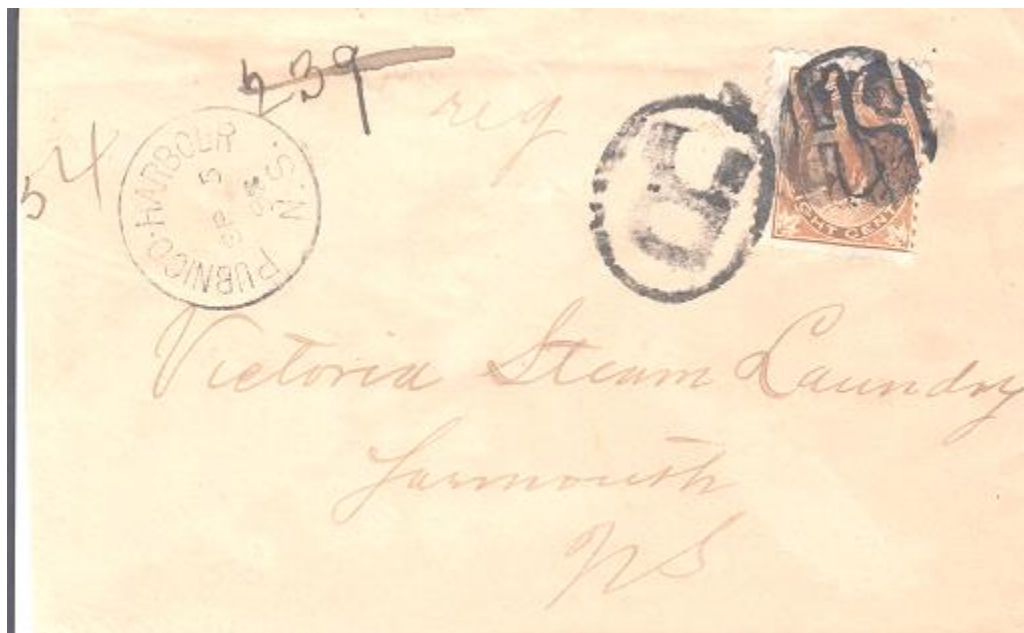 239
reg
54
PUBNICO-HARBOUR N.S.
5
SP
98
R
EIGHT CENT
Victoria Steam Laundry
Yarmouth
NS